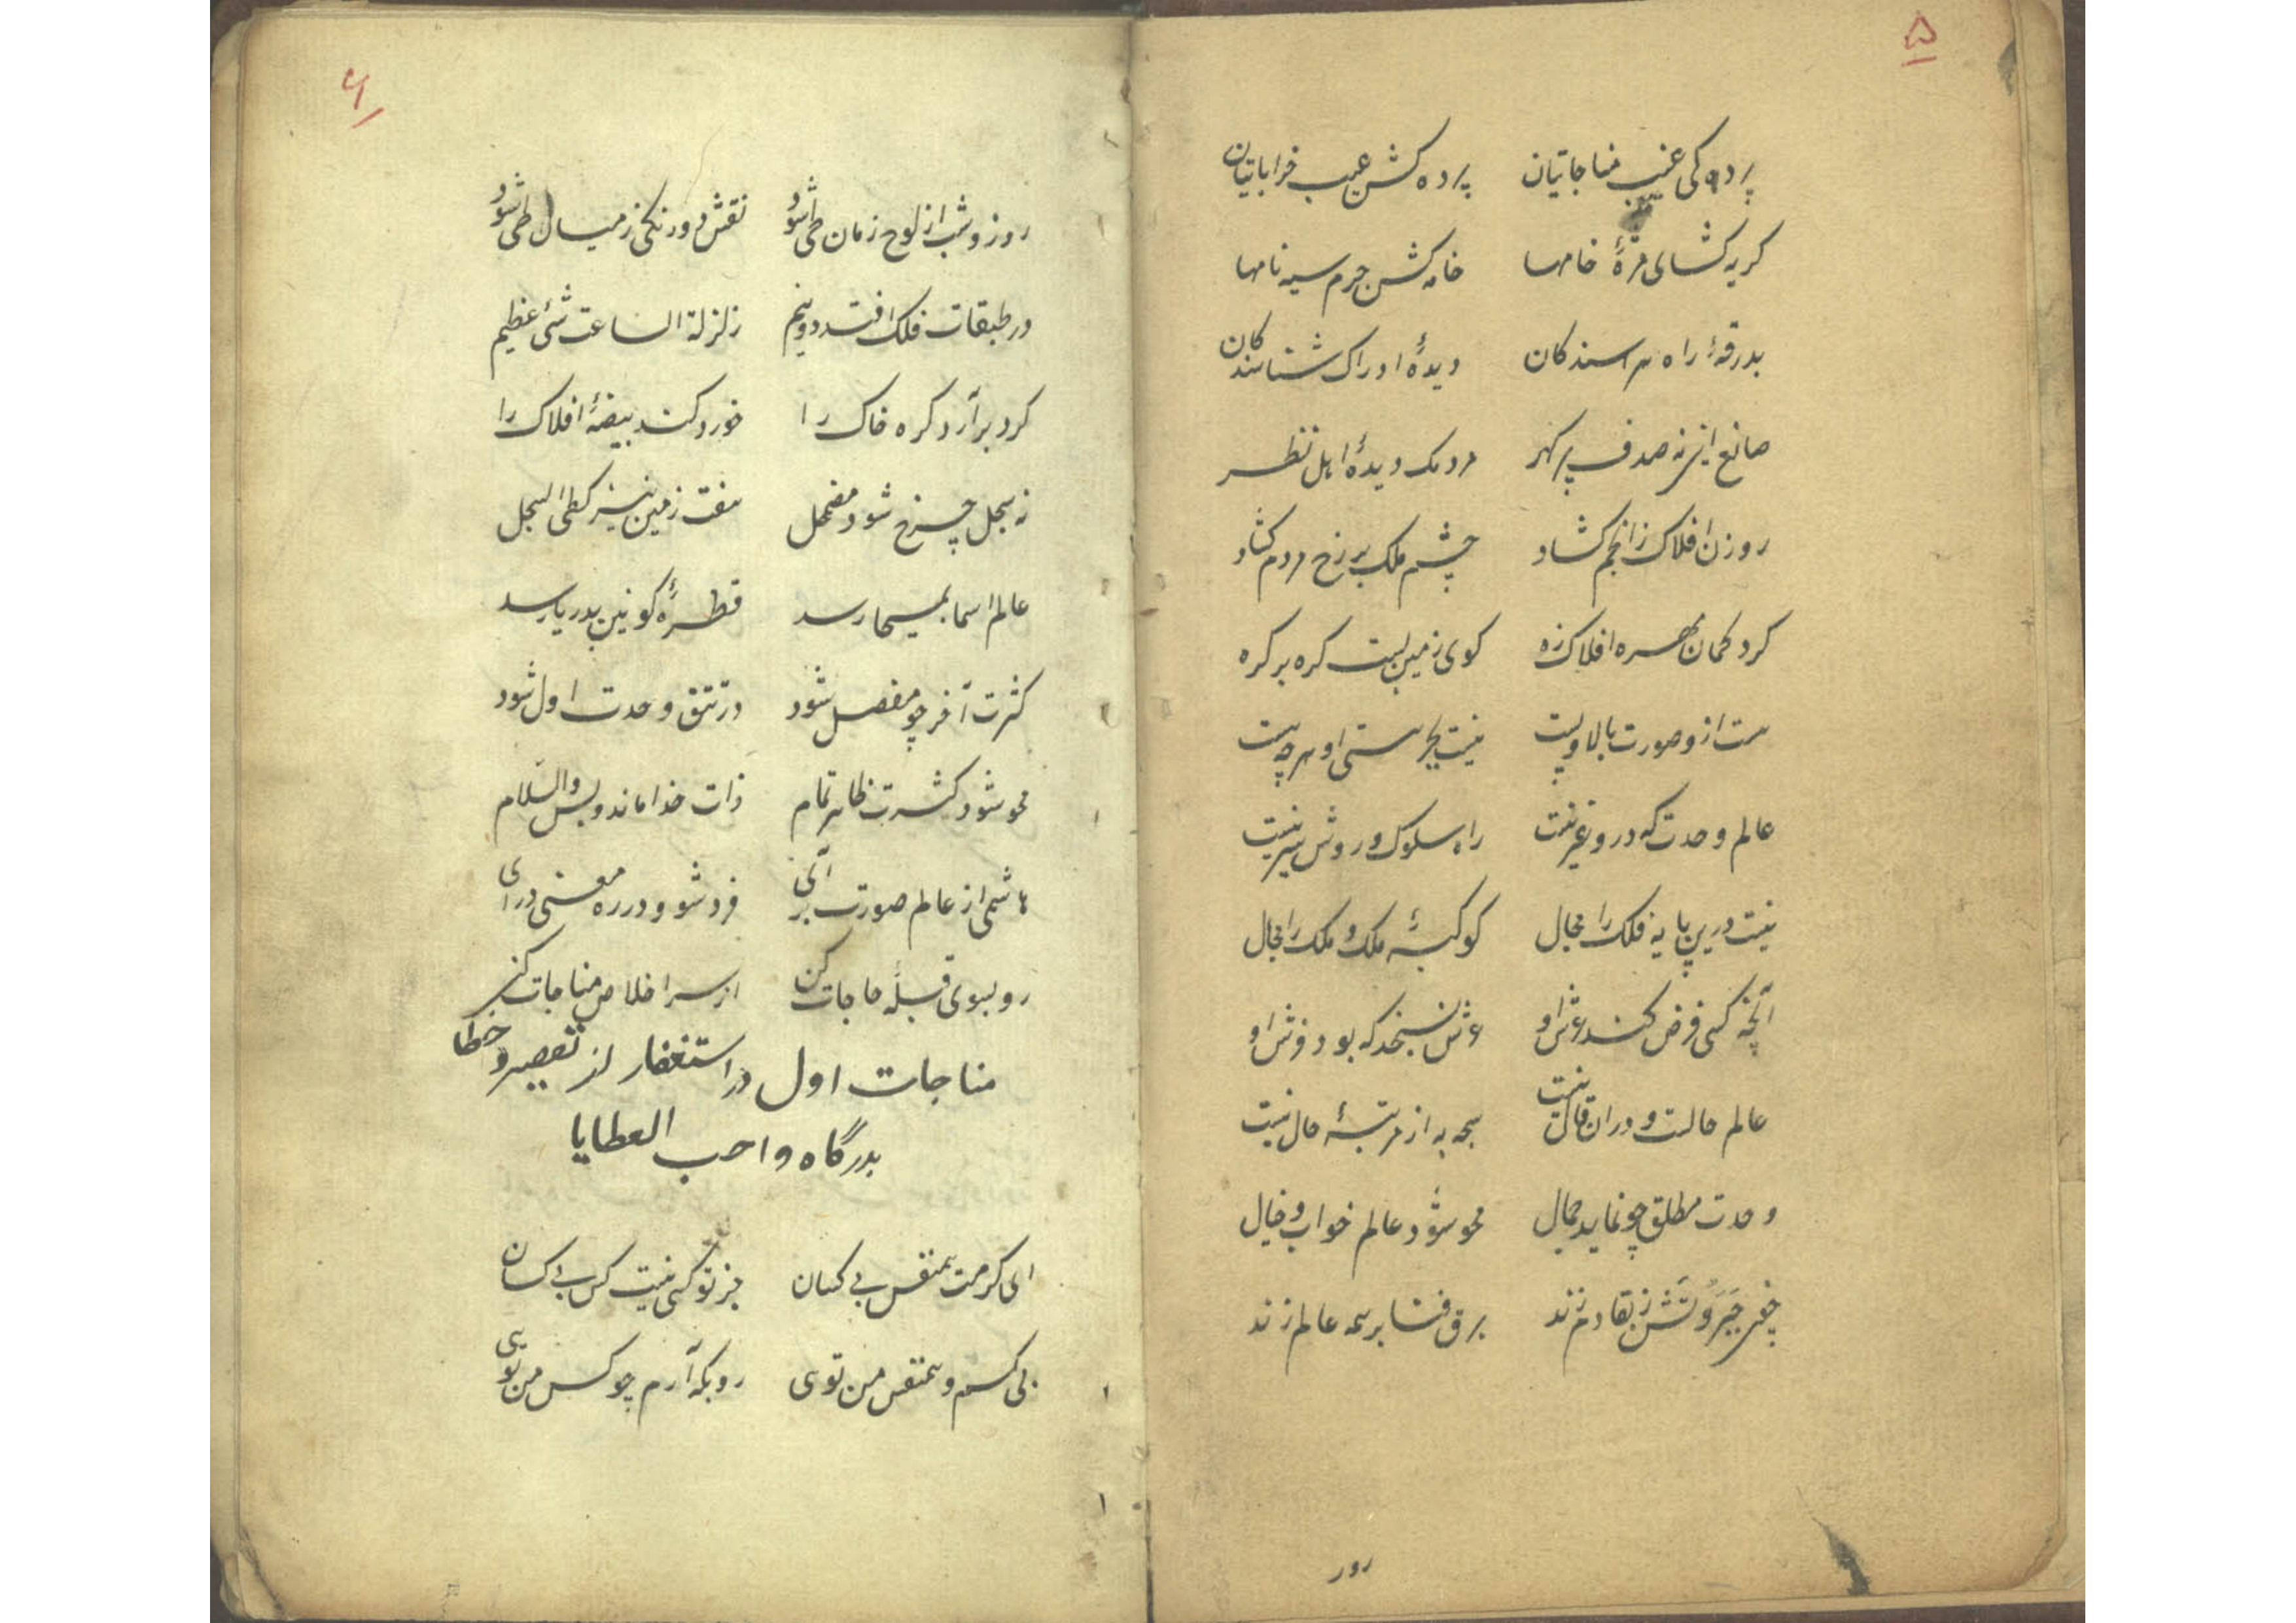 ۵
پرده کی غیب مناجاتیان پرده کش عیب خراباتیان
کریه کشای مژهٔ خامها خامه کش جرم سیه نامها
بدرقهٔ راه هراسندکان دیدهٔ ادراک شناسندکان
صانع این نه صدف پر کهر مردمک دیدهٔ اهل نظر
روزن افلاک ز انجم کشاد چشم ملک بر رخ مردم کشاد
کرد کمان مهره افلاک زه کوی زمین بست کره بر کره
هست ازو صورت بالا و پست نیست بجز هستی او هر چه هست
عالم وحدت که درو غیر نیست راه سلوک و روش سیر نیست
نیست درین پایه فلک را مجال کوکبهٔ ملک و ملک را مجال
آنچه کسی فرض کند عرش او عرش نسنجد که بود فرش او
عالم حالست و دران قال نیست هیچ به از مرتبهٔ حال نیست
وحدت مطلق چو نماید جمال محو شود عالم خواب و خیال
چون جبروتش ز بقا دم زند برق فنا بر همه عالم زند
روز
۶
روز و شب از لوح زمان طی شود نقش دورنکی ز میان طی شود
در طبقات فلک افتد دو نیم زلزلة الساعت شئ عظیم
کرد برآرد کره خاک را خورد کند بیضهٔ افلاک را
نه سجل چرخ شود مضمحل هفت زمین نیز کطی السجل
عالم اسما بمسیحا رسد قطرهٔ کونین بدریا رسد
کثرت آخر چو مفصل شود در تتق وحدت اول شود
محو شود کثرت ظاهر تمام ذات خدا ماند و بس والسّلام
هاشمی از عالم صورت برآی فرد شو و در ره معنی درای
رو بسوی قبلهٔ حاجات کن از سر اخلاص مناجات کن
مناجات اول در استغفار از تقصیر و خطا
بدرگاه واهب العطایا
ای کرمت همنفس بی کسان جز تو کسی نیست کس بی کسان
بی کسم و همنفس من توی رو بکه آرم چو کس من تویی